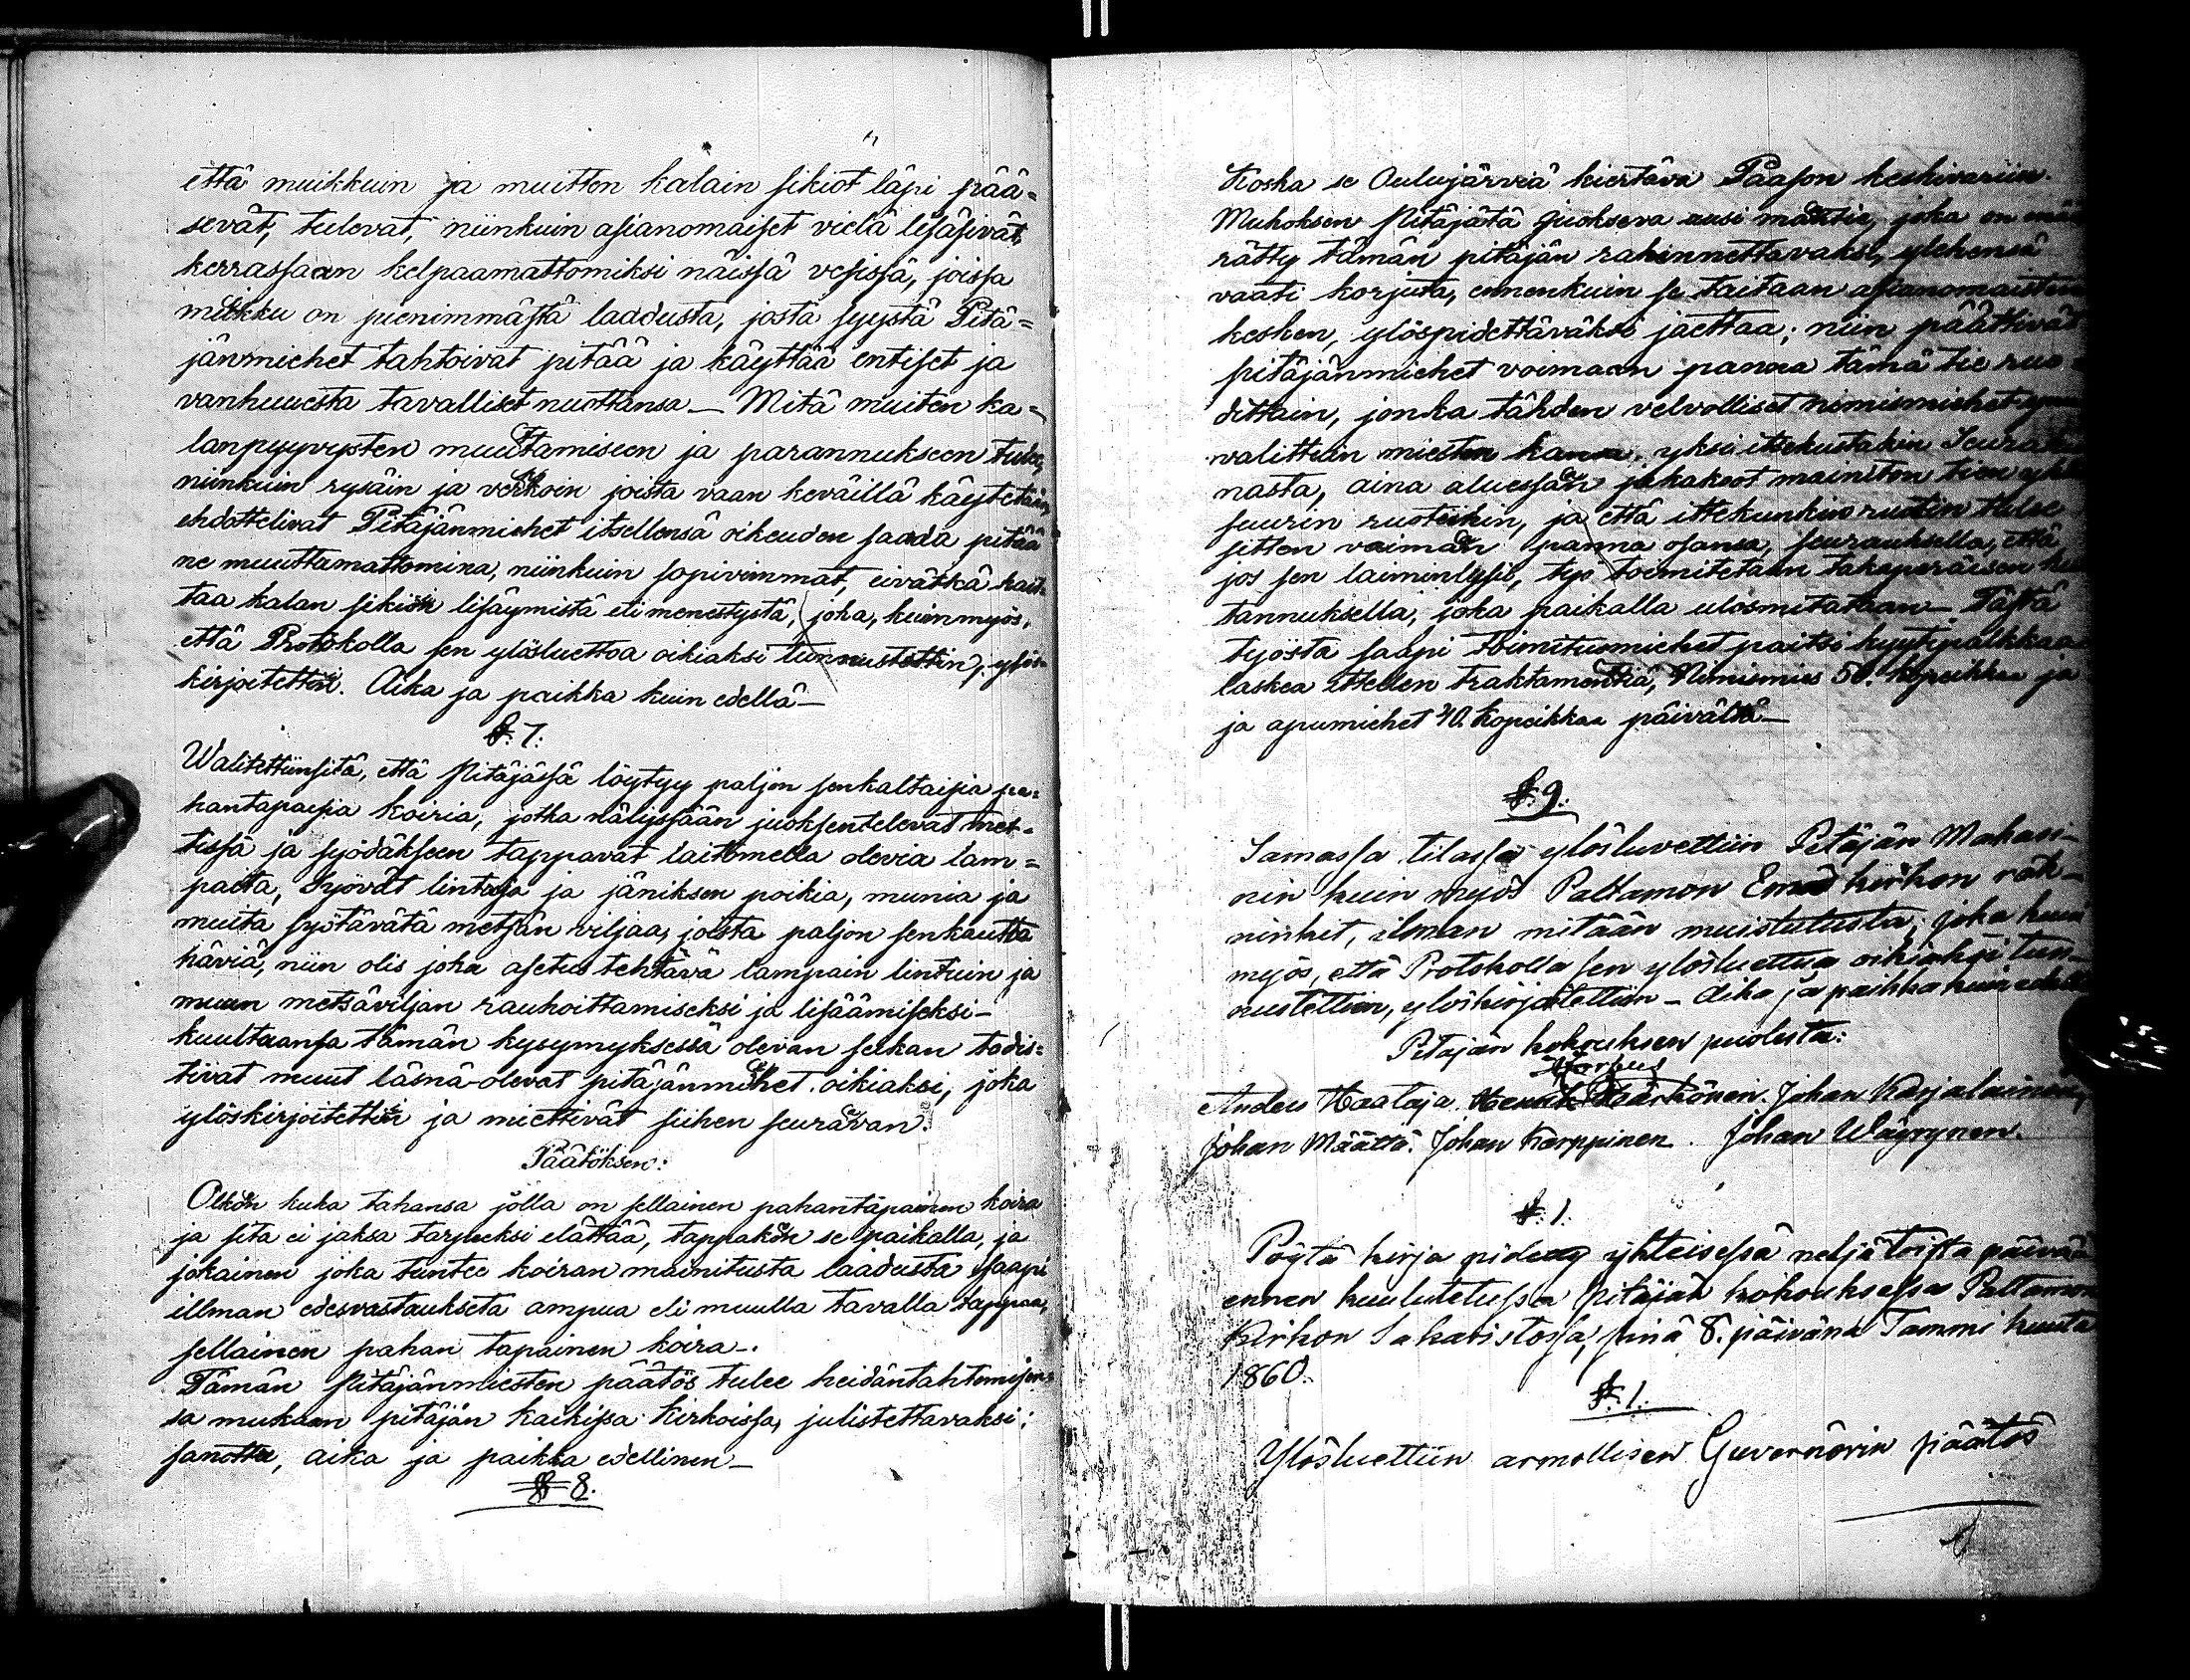 että muikkuin ja muitten kalain sikiöt läpi pää=
sevät, tulevat, niinkuin asianomaiset vielä lisäsivät,
kerrassaan kelpaamattomiksi näissä vesissä, joissa
muikku on pienimmästä laadusta, josta syystä Pitä=
jänmiehet tahtoivat pitää ja käyttää entiset ja
vanhuuesta tavalliset nuottansa — Mitä muiten ka=
lanpyyvysten muuttamiseen ja parannukseen tulee,
niinkuin rysäin ja verkoin joista vaan keväillä käytetään,
ehdottelivat Pitäjänmiehet itsellensä oikeuden saada pitää
ne muuttamattomina, niinkuin sopivimmat, eivätkä hait=
taa kalan sikiön lisäymistä eli menestystä, joka, kuin myös,
että Protokolla sen ylösluettoa oikiaksi tunnustettiin, ylös=
kirjoitettiin. Aika ja paikka kuin edellä —
§. 7.
Walitettiin sitä, että Pitäjässä löytyy paljon senkaltaisia pa=
hantapasia koiria, jotka nälijssään juoksentelevat met=
tissä ja syödäkseen tappavat laitumella olevia lam=
paita, Syövät lintuja ja jäniksen poikia, munia ja
muita syötävätä metsän viljaa, joista paljon senkautta
häviä, niin olis joku asetus tehtävä lampain lintuin ja
muun metsäviljan rauhoittamiseksi ja lisäämiseksi —
Kuultuansa tämän kysymyksessä olevan seikan todis=
tivat muut läsnä-olevat pitäjänmiehet oikiaksi, joka
ylöskirjoitettiin ja miettivät siihen seuraavan:
Päätöksen:
Olkoon kuka tahansa jolla on sellainen pahantapainen koira
ja sitä ei jaksa tarpeeksi elättää, tappakoon se paikalla, ja
jokainen joka tuntee koiran mainitusta laadusta saapi
illman edesvastaukseta ampua eli muulla tavalla tappaa,
sellainen pahan tapainen koira —.
Tämän Pitäjänmiesten päätös tulee heidän tahtomisen=
sa mukaan pitäjän kaikissa Kirkoissa, julistettavaksi;
sanottu, aika ja paikka edellinen —
§ 8.
Koska se Oulujärviä kiertävä Paason keskivariin
Muhoksen Pitäjästä juokseva uusi maantie, joka on mää
rätty tämän pitäjän rakennettavaksi, ylehensä
vaati korjuta, ennenkuin se taitaan asianomaisten
kesken, ylöspidettäväksi jaettaa; niin päättivät
pitäjänmiehet voimaan panna tämä tie ruo=
dittain, jonka tähden velvolliset nimismiehet
valittuin miesten kanssa, yksi ittekustakin Seurakun
nasta, aina aluessaan jakakoot mainiton tien
suurin ruoteihin, ja että ittekunkin ruotin tulee
sitten voimaan panna osansa, seurauksella, että
jos sen laiminlysii, työ toimitetaan takaperäisen kus
tannuksella, joka paikalla ulosmitataan — Tästä
työsta saapi toimitusmiehet paitsi kyytipalkkaa
laskea itselen traktamentiä, Nimismies 50. kopeikkaa ja
ja apumiehet 40. kopeikkaa päivältä —
§. 9.
Samassa tilassa ylösluvettiin Pitäjän Makasi-
nin kuin myös Paltamon Emä kirkon räk-
ninkit, ilman mitään muistutusta, joka kuin
myös, että Protokolla sen ylösluettua oikiaksi tun-
nustettiin, ylöskirjoitettiin — Aika ja paikka kuin edellä
Pitäjän kokouksen puolesta:
Markus
Anders Haataja. Henrik Härkönen. Johan Karjalainen,
Johan Määttä. Johan Karppinen. Johan Wäyrynen.
§. 1.
Pöytä kirja pidetty yhteisessä neljätoista päivää
ennen kuulutetussa Pitäjän kokouksessa Paltamon
Kirkon Sakaristossa, sinä 8. päivänä Tammi kuuta
1860.
§. 1.
Ylösluettiin armollisen Guvernörin päätös